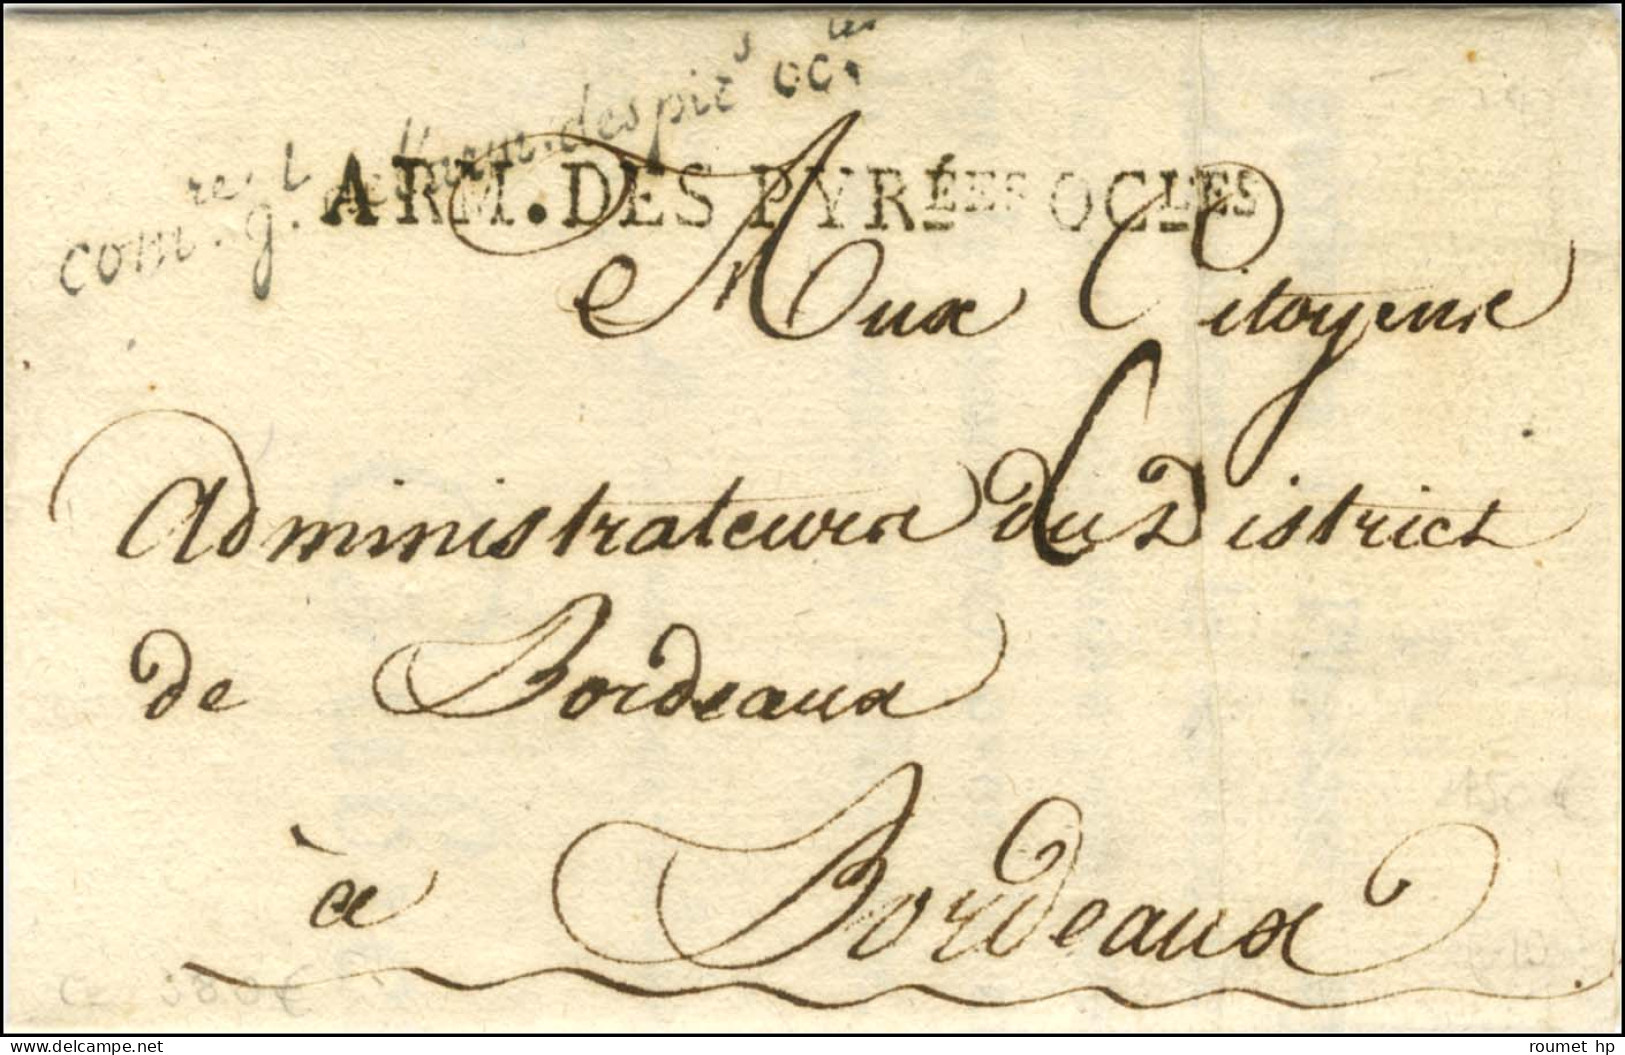 com.re g.l de l'arm. des pir.s occ.les
ARM. DES PYRÉES OCLES
Aux Citoyens
Administrateurs du District
de Bordeaux
à Bordeaux
150 €
380€
www.delcampe.net
roumet_hp